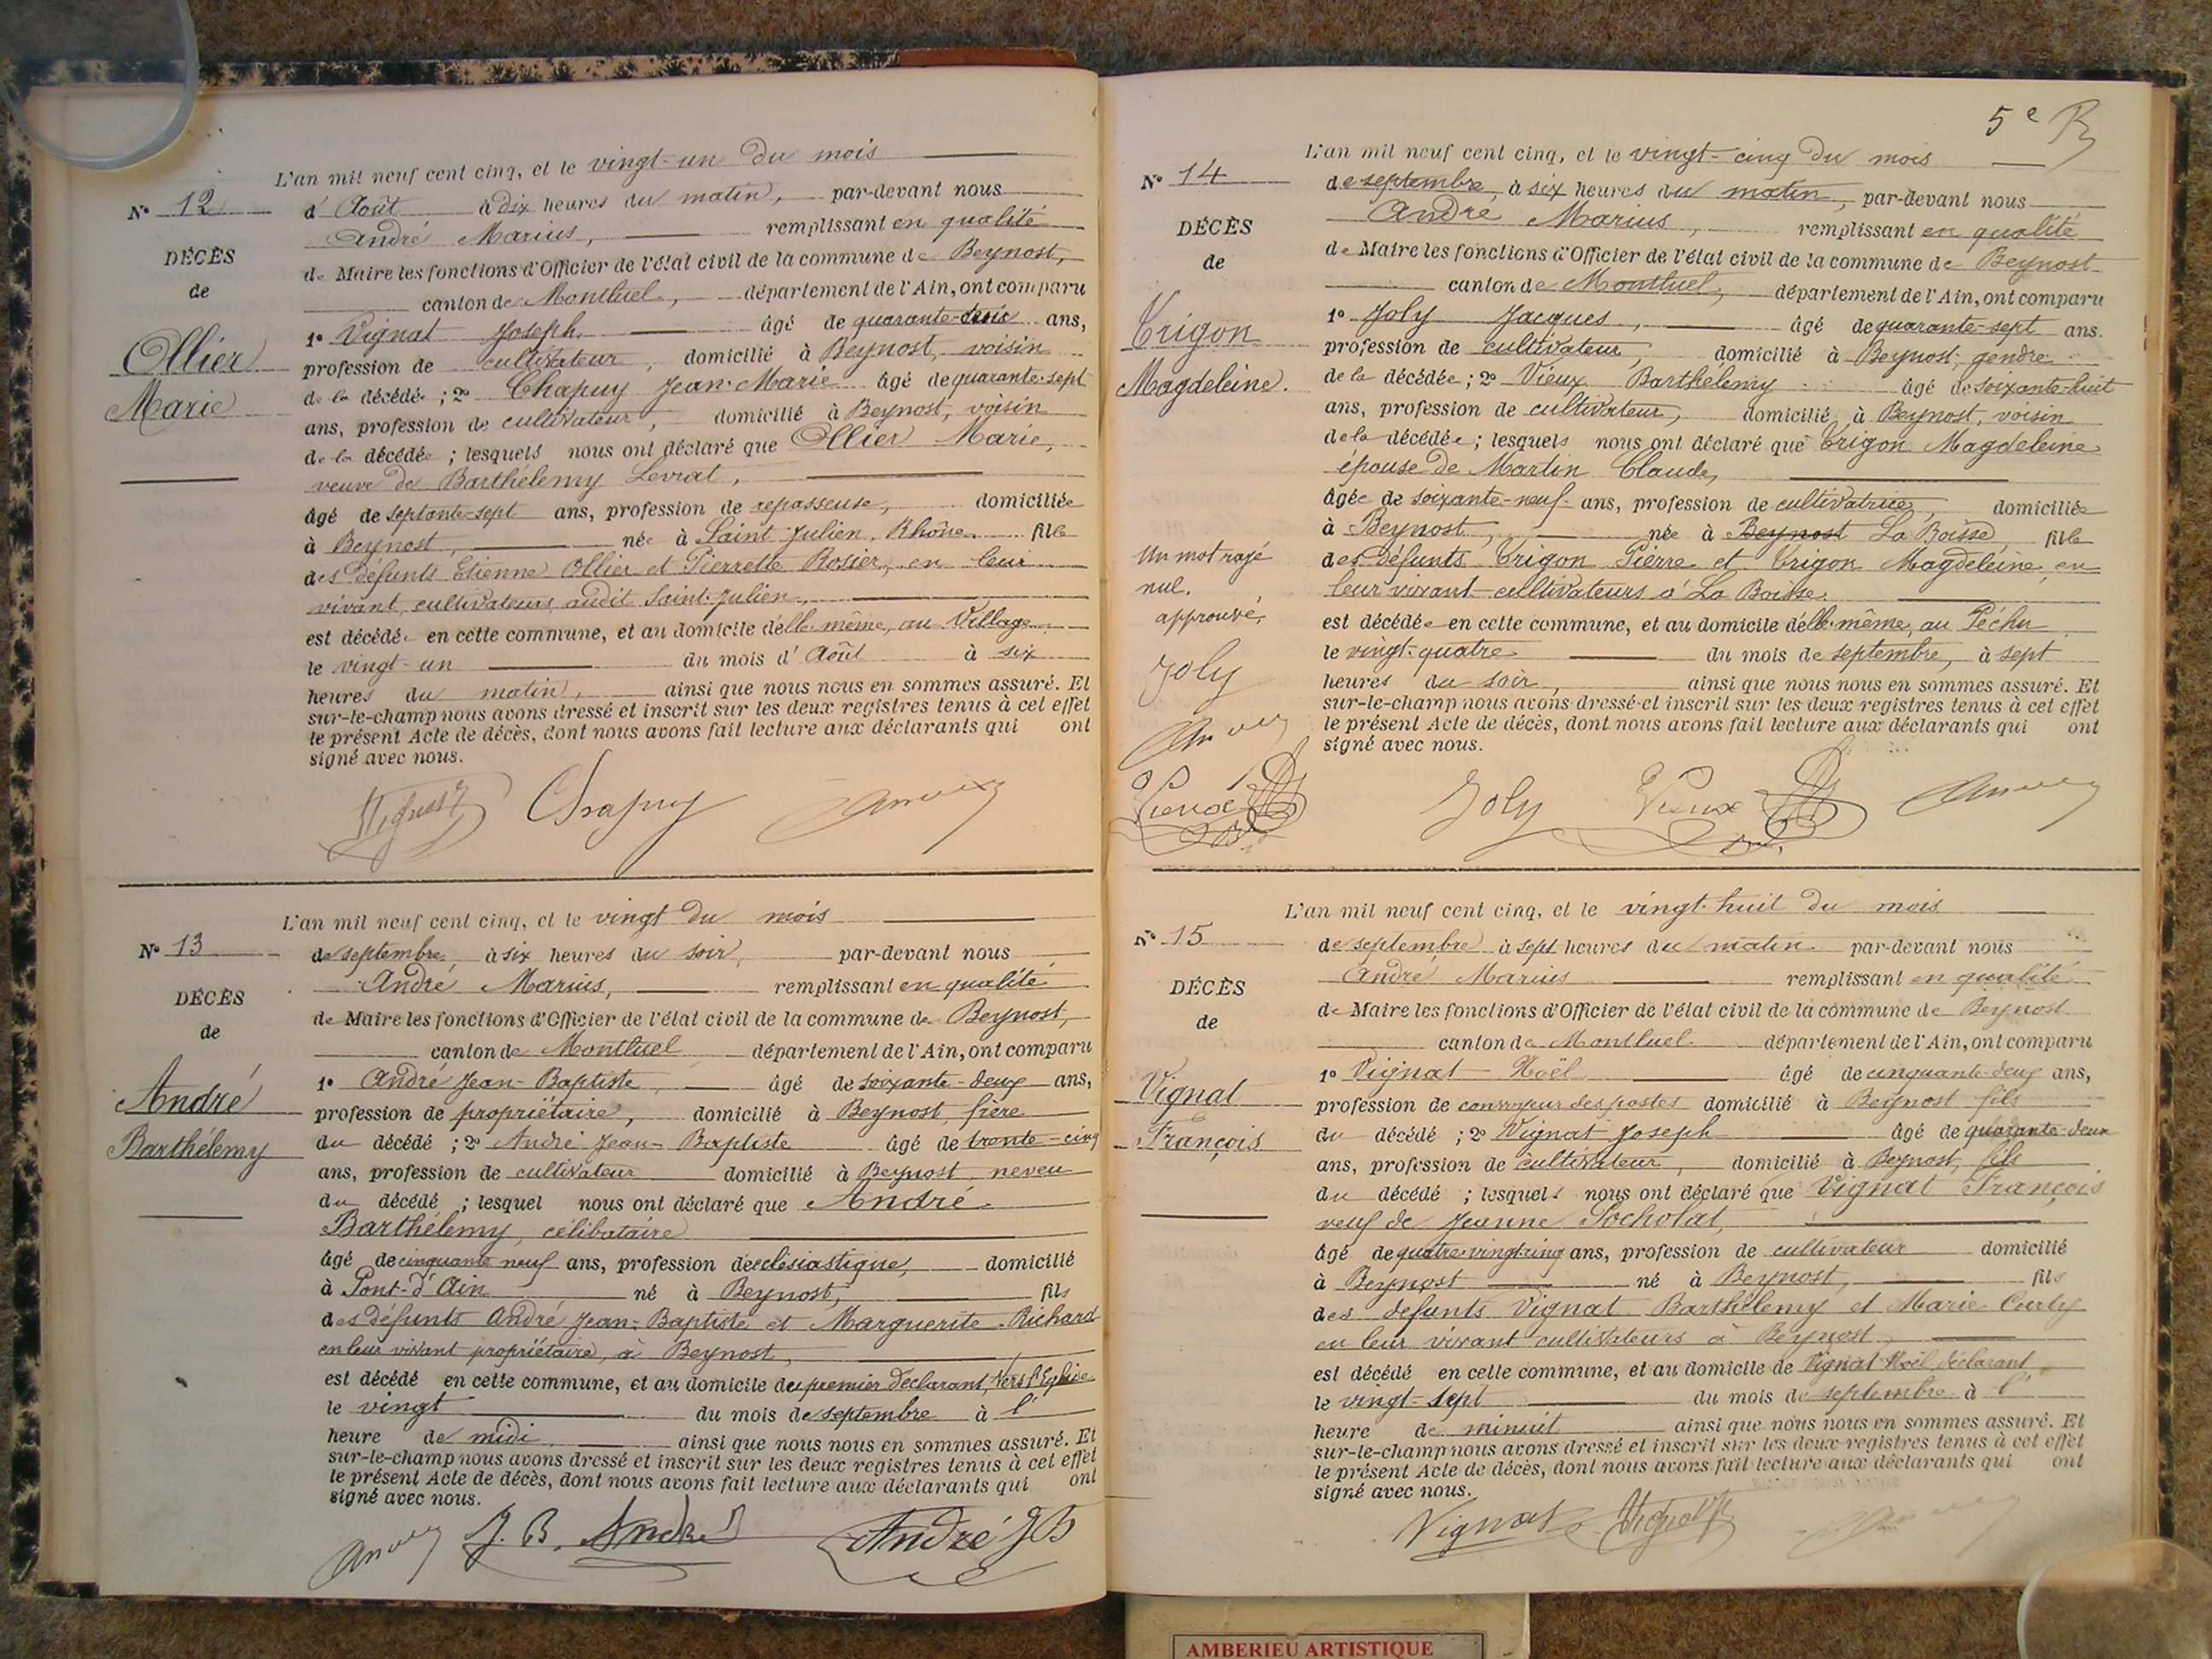 L'an mil neuf cent cinq, et le vingt-un du mois
N° 12
d'Août à dix heures du matin, par-devant nous
André Marius, remplissant en qualité
DÉCÈS
de
de Maire les fonctions d'Officier de l'état civil de la commune de Beynost,
canton de Montluel, département de l'Ain, ont comparu
Ollier
Marie
1° Vignat Joseph âgé de quarante-deux ans,
profession de cultivateur, domicilié à Beynost, voisin
de la décédée ; 2° Chapuy Jean-Marie âgé de quarante-sept
ans, profession de cultivateur, domicilié à Beynost, voisin
de la décédée ; lesquels nous ont déclaré que Ollier Marie,
veuve de Barthélemy Levrat,
âgé de septante-sept ans, profession de repasseuse, domiciliée
à Beynost, née à Saint-Julien, Rhône. fille
des défunts Etienne Ollier et Pierrette Rosier, en leur
vivant cultivateurs audit Saint-Julien,
est décédée en cette commune, et au domicile d'elle-même, au Village
le vingt-un du mois d'Août à six
heures du matin, ainsi que nous nous en sommes assuré. Et
sur-le-champ nous avons dressé et inscrit sur les deux registres tenus à cet effet
le présent Acte de décès, dont nous avons fait lecture aux déclarants qui ont
signé avec nous.
Vignat J Chapuy
L'an mil neuf cent cinq, et le vingt du mois
N° 13
de septembre, à six heures du soir, par-devant nous
André Marius, remplissant en qualité
DÉCÈS
de
de Maire les fonctions d'Officier de l'état civil de la commune de Beynost,
canton de Montluel département de l'Ain, ont comparu
André
Barthélemy
1° André Jean-Baptiste, âgé de soixante-deux ans,
profession de propriétaire, domicilié à Beynost, frère
du décédé ; 2° André Jean-Baptiste âgé de trente-cinq
ans, profession de cultivateur domicilié à Beynost, neveu
du décédé ; lesquel nous ont déclaré que André
Barthélemy, célibataire
âgé de cinquante neuf ans, profession d'ecclésiastique, domicilié
à Pont-d'Ain né à Beynost, fils
des défunts André Jean-Baptiste et Marguerite Richard
en leur vivant propriétaire, à Beynost,
est décédé en cette commune, et au domicile du premier déclarant, Vers l'Eglise
le vingt du mois de septembre à l'
heure de midi ainsi que nous nous en sommes assuré. Et
sur-le-champ nous avons dressé et inscrit sur les deux registres tenus à cet effet
le présent Acte de décès, dont nous avons fait lecture aux déclarants qui ont
signé avec nous.
J. B. André André JB
5e
L'an mil neuf cent cinq, et le vingt-cinq du mois
N° 14
de septembre, à six heures du matin, par-devant nous
André Marius, remplissant en qualité
DÉCÈS
de
de Maire les fonctions d'Officier de l'état civil de la commune de Beynost
canton de Montluel, département de l'Ain, ont comparu
Trigon
Magdeleine.
1° Joly Jacques, âgé de quarante-sept ans.
profession de cultivateur, domicilié à Beynost, gendre
de la décédée ; 2° Vieux Barthélemy âgé de soixante-huit
ans, profession de cultivateur, domicilié à Beynost, voisin
de la décédée ; lesquels nous ont déclaré que Trigon Magdeleine
épouse de Martin Claude,
âgée de soixante-neuf ans, profession de cultivatrice, domiciliée
à Beynost, née à Beynost La Boisse, fille
des défunts Trigon Pierre et Trigon Magdeleine, en
leur vivant cultivateurs à La Boisse.
Un mot rayé
nul.
approuvé,
Joly
Vieux
B
est décédée en cette commune, et au domicile d'elle-même, au Péchu
le vingt-quatre du mois de septembre, à sept
heures du soir, ainsi que nous nous en sommes assuré. Et
sur-le-champ nous avons dressé et inscrit sur les deux registres tenus à cet effet
le présent Acte de décès, dont nous avons fait lecture aux déclarants qui ont
signé avec nous.
Joly Vieux
L'an mil neuf cent cinq, et le vingt-huit du mois
N° 15
de septembre à sept heures du matin par-devant nous
André Marius remplissant en qualité
DÉCÈS
de
de Maire les fonctions d'Officier de l'état civil de la commune de Beynost
canton de Montluel département de l'Ain, ont comparu
Vignat
François
1° Vignat Noël âgé de cinquante-deux ans,
profession de convoyeur des postes domicilié à Beynost fils
du décédé ; 2° Vignat Joseph âgé de quarante-deux
ans, profession de cultivateur, domicilié à Beynost, fils
du décédé ; lesquels nous ont déclaré que Vignat François
veuf de Jeanne Socholat,
âgé de quatre-vingt-cinq ans, profession de cultivateur domicilié
à Beynost né à Beynost, fils
des défunts Vignat Barthélemy et Marie Curty
en leur vivant cultivateurs à Beynost,
est décédé en cette commune, et au domicile de Vignat Noël déclarant
le vingt-sept du mois de septembre à l'
heure de minuit ainsi que nous nous en sommes assuré. Et
sur-le-champ nous avons dressé et inscrit sur les deux registres tenus à cet effet
le présent Acte de décès, dont nous avons fait lecture aux déclarants qui ont
signé avec nous.
Vignat Vignat J
AMBERIEU ARTISTIQUE